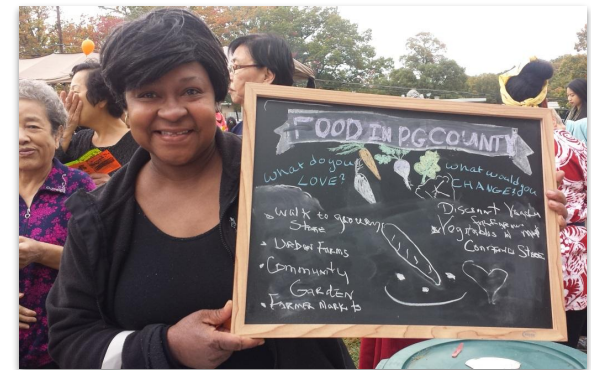 FOOD IN PG COUNTY
what do you
LOVE?
walk to grocery
Store
URBAN FARMS
Community
GARDEN
FARMER MARKETS
what would you
CHANGE?
Discount
Vegetables in most
Store